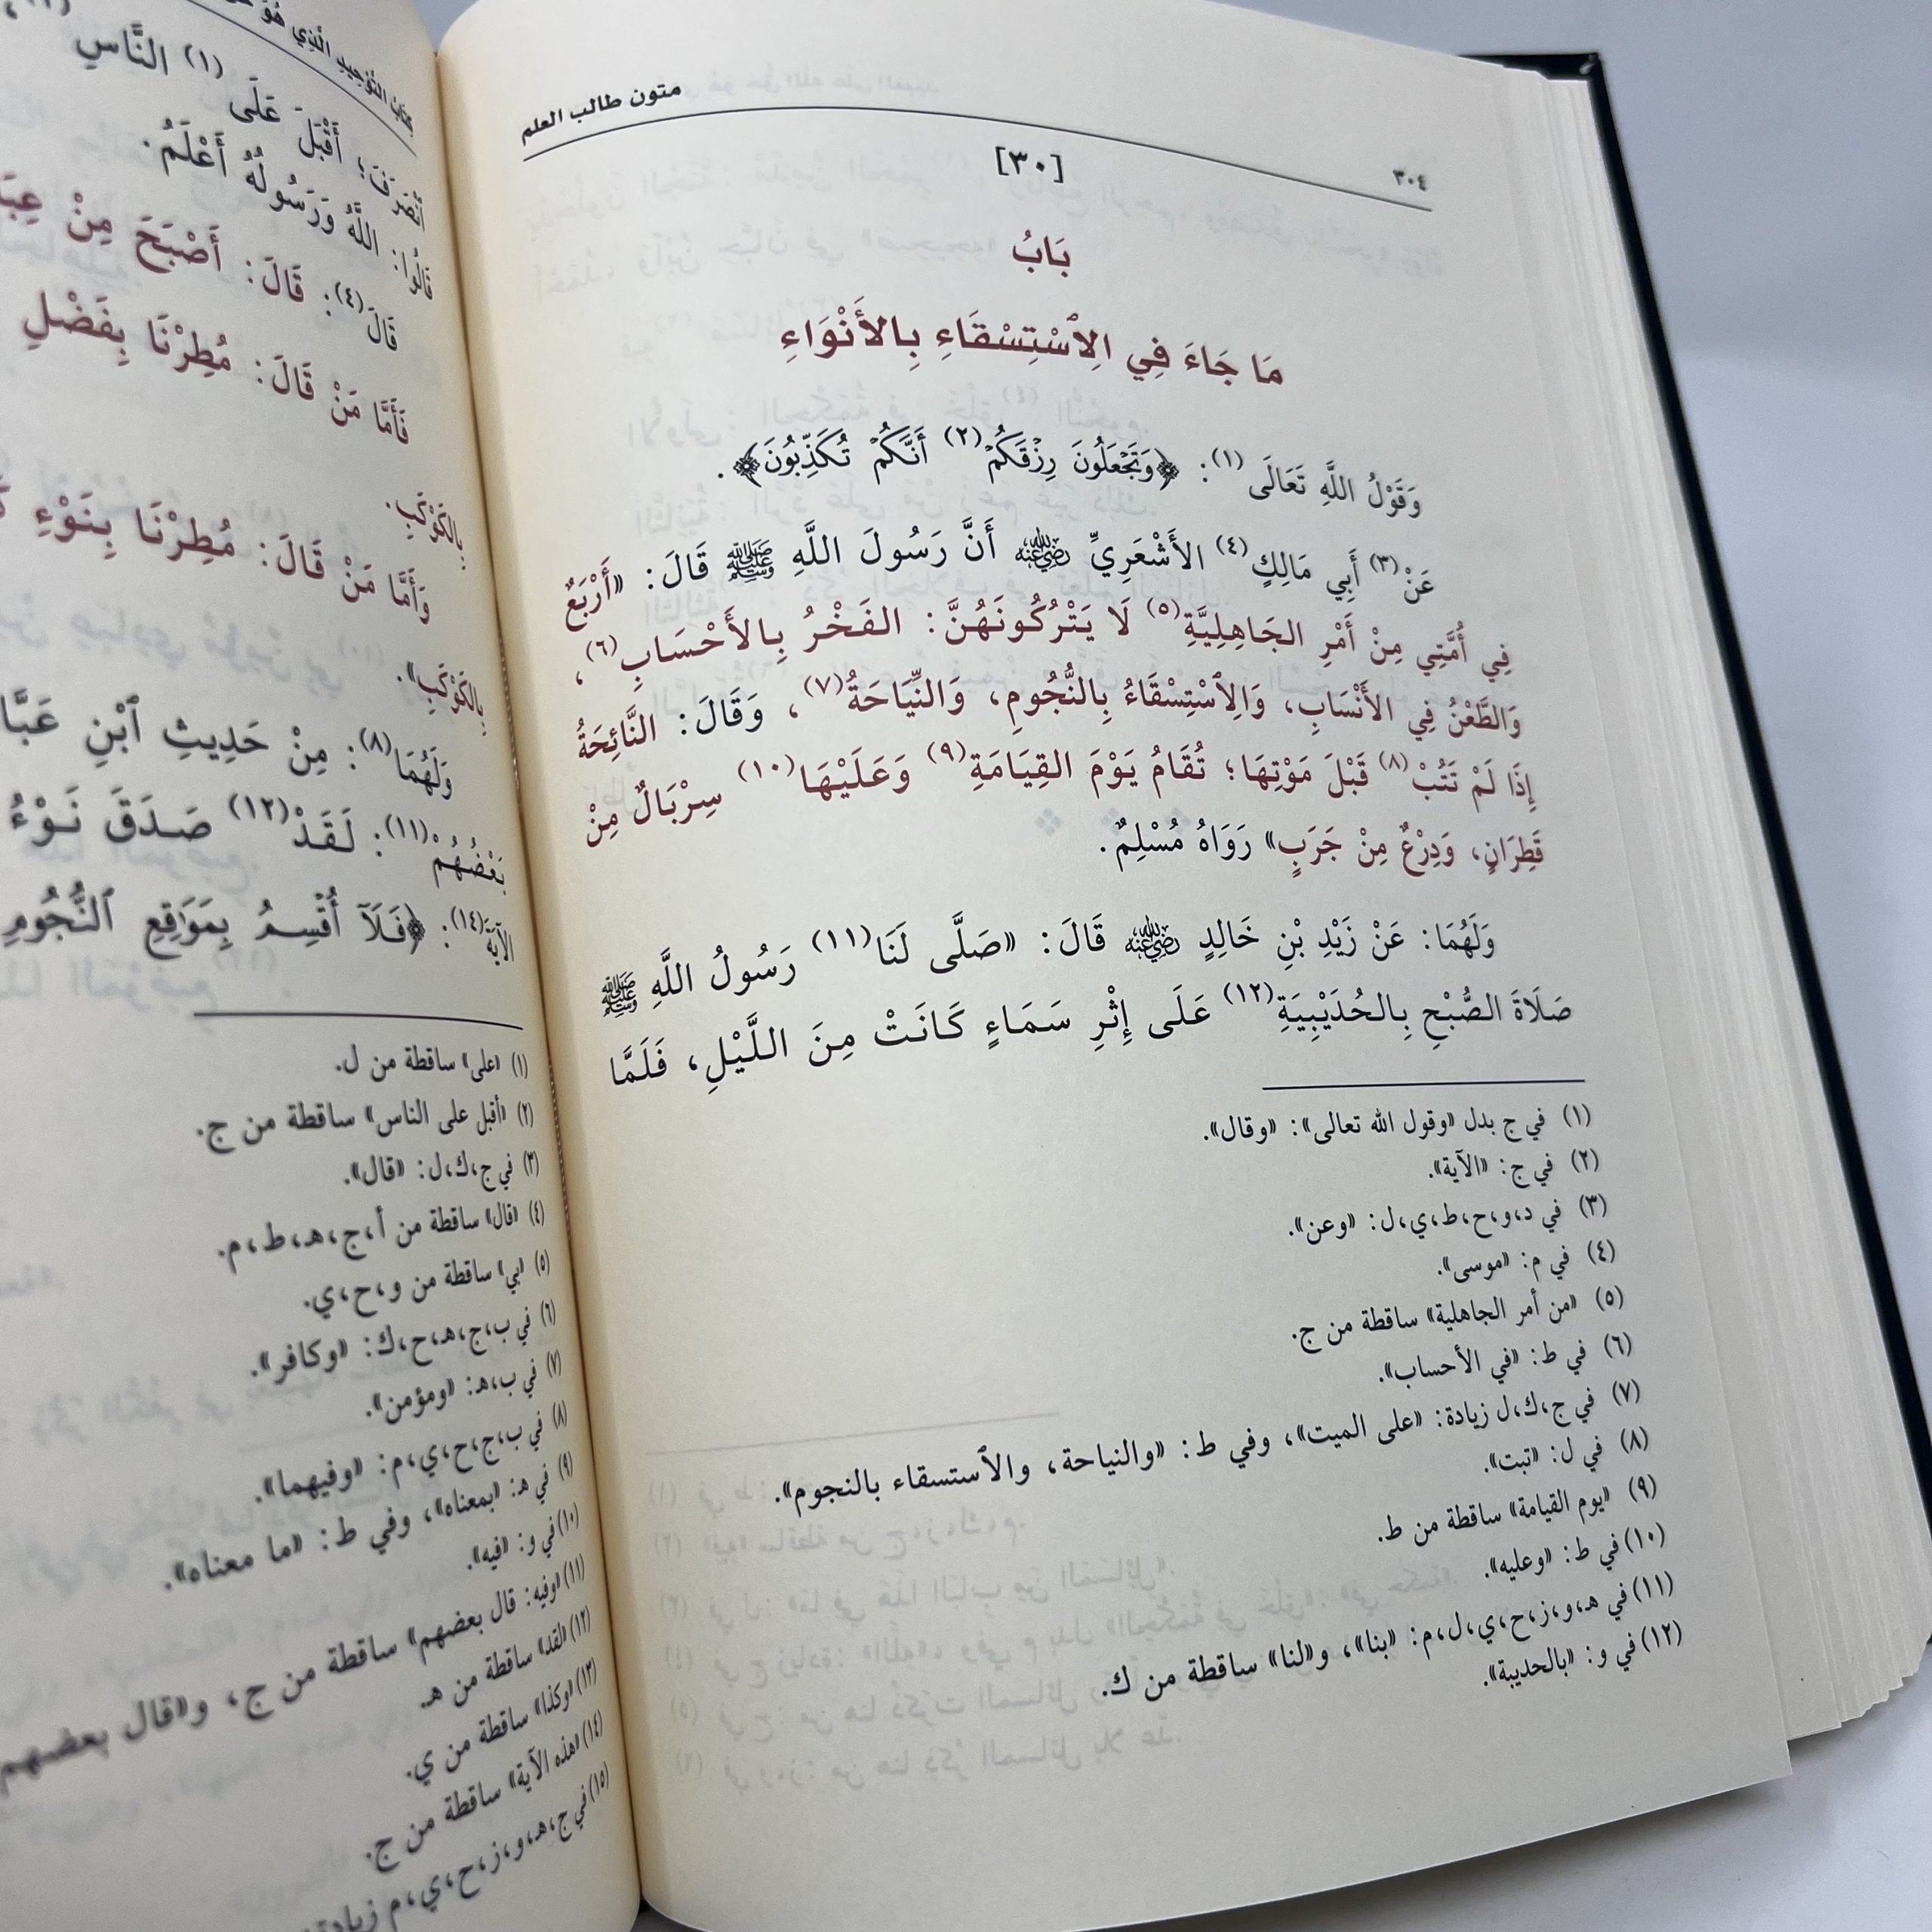 متون طالب العلم
٣٠٤
[٣٠]
بَابُ
مَا جَاءَ فِي الِٱسْتِسْقَاءِ بِالأَنْوَاءِ
وَقَوْلُ اللَّهِ تَعَالَى(١): ﴿وَتَجْعَلُونَ رِزْقَكُمْ(٢) أَنَّكُمْ تُكَذِّبُونَ﴾.
عَنْ(٣) أَبِي مَالِكٍ(٤) الأَشْعَرِيِّ ﵁ أَنَّ رَسُولَ اللَّهِ ﷺ قَالَ: «أَرْبَعٌ
فِي أُمَّتِي مِنْ أَمْرِ الجَاهِلِيَّةِ(٥) لَا يَتْرُكُونَهُنَّ: الفَخْرُ بِالأَحْسَابِ(٦)،
وَالطَّعْنُ فِي الأَنْسَابِ، وَالِٱسْتِسْقَاءُ بِالنُّجُومِ، وَالنِّيَاحَةُ(٧)، وَقَالَ: النَّائِحَةُ
إِذَا لَمْ تَتُبْ(٨) قَبْلَ مَوْتِهَا؛ تُقَامُ يَوْمَ القِيَامَةِ(٩) وَعَلَيْهَا(١٠) سِرْبَالٌ مِنْ
قَطِرَانٍ، وَدِرْعٌ مِنْ جَرَبٍ» رَوَاهُ مُسْلِمٌ.
وَلَهُمَا: عَنْ زَيْدِ بْنِ خَالِدٍ ﵁ قَالَ: «صَلَّى لَنَا(١١) رَسُولُ اللَّهِ ﷺ
صَلَاةَ الصُّبْحِ بِالحُدَيْبِيَةِ(١٢) عَلَى إِثْرِ سَمَاءٍ كَانَتْ مِنَ اللَّيْلِ، فَلَمَّا
(١) في ج بدل «وقول الله تعالى»: «وقال».
(٢) في ج: «الآية».
(٣) في د،و،ح،ط،ي،ل: «وعن».
(٤) في م: «موسى».
(٥) «من أمر الجاهلية» ساقطة من ج.
(٦) في ط: «في الأحساب».
(٧) في ج،ك،ل زيادة: «على الميت»، وفي ط: «والنياحة، والٱستسقاء بالنجوم».
(٨) في ل: «تبت».
(٩) «يوم القيامة» ساقطة من ط.
(١٠) في ط: «وعليه».
(١١) في هـ،و،ز،ح،ي،ل،م: «بنا»، و«لنا» ساقطة من ك.
(١٢) في و: «بالحديبة».
كِتَابُ التَّوْحِيدِ الَّذِي هُوَ
ٱنْصَرَفَ؛ أَقْبَلَ عَلَى(١) النَّاسِ
قَالُوا: اللَّهُ وَرَسُولُهُ أَعْلَمُ.
قَالَ(٤): قَالَ: أَصْبَحَ مِنْ
فَأَمَّا مَنْ قَالَ: مُطِرْنَا بِفَضْلِ
بِالكَوْكَبِ.
وَأَمَّا مَنْ قَالَ: مُطِرْنَا بِنَوْءِ
بِالكَوْكَبِ».
وَلَهُمَا(٨): مِنْ حَدِيثِ ٱبْنِ
بَعْضُهُمْ(١١): لَقَدْ(١٢) صَدَقَ نَوْءُ
الآيَةَ(١٤): ﴿فَلَآ أُقْسِمُ بِمَوَاقِعِ ٱلنُّجُومِ
(١) «على» ساقطة من ل.
(٢) «أقبل على الناس» ساقطة من ج.
(٣) في ج،ك،ل: «قال».
(٤) «قال» ساقطة من أ،ج،هـ،ط،م.
(٥) «بي» ساقطة من و،ح،ي.
(٦) في ب،ج،هـ،ح،ك: «وكافر».
(٧) في ب،هـ: «ومؤمن».
(٨) في ب،ج،ح،ي،م: «وفيهما».
(٩) في هـ: «بمعناه»، وفي ط: «ما معناه».
(١٠) في و: «فيه».
(١١) «وفيه: قال بعضهم» ساقطة من ج، و«قال بعضهم
(١٢) «لقد» ساقطة من هـ.
(١٣) «وكذا» ساقطة من ي.
(١٤) «هذه الآية» ساقطة من ج.
(١٥) في ج،هـ،و،ز،ح،ي،م زيادة: